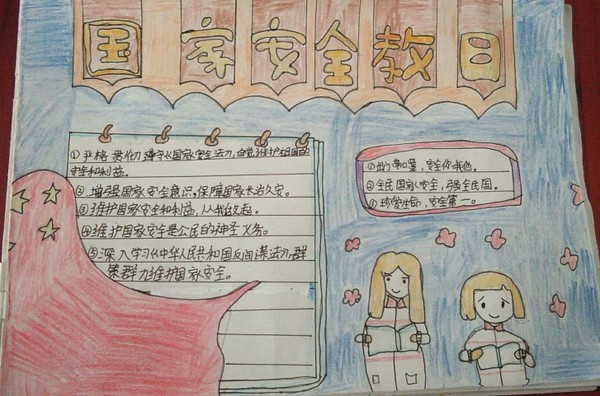 国家安全教日
①严格贯彻遵守《国家安全法》,自觉维护祖国的
安全和利益。
②增强国家安全意识,保障国家长治久安。
③维护国家安全和利益,从我做起。
④维护国家安全是公民的神圣义务。
⑤深入学习《中华人民共和国反间谍法》,群
策群力维护国家安全。
安全你我他。
②全民国家安全,强全民国。
③珍爱生命,安全第一。